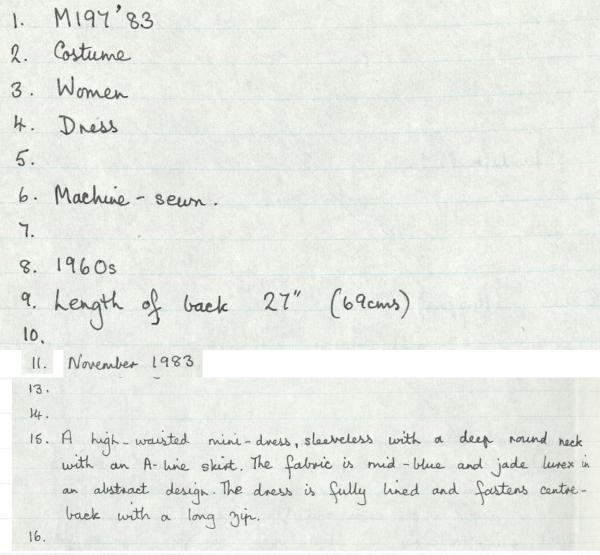 1. M197'83
2. Costume
3. Women
4. Dress
5.
6. Machine - sewn.
7.
8. 1960s
9. Length of back 27" (69cms)
10.
11. November 1983
13.
14.
15. A high-waisted mini-dress, sleeveless with a deep round neck
with an A-line skirt. The fabric is mid-blue and jade lurex in
an abstract design. The dress is fully lined and fastens centre-
back with a long zip.
16.